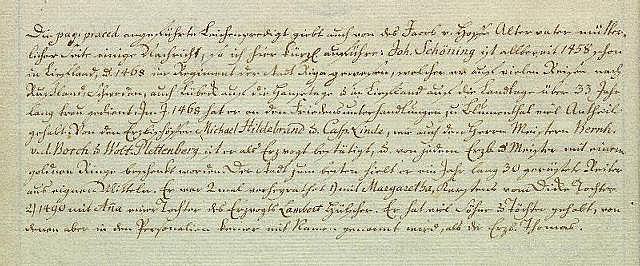 Die pagi praeced angeführte Leichenpredigt giebt auch von des Jacob v. Höyer Alter vater mütter-
licher Seite einige Nachricht, so ich hier kürzl. anführe: Joh. Schöning ist allbereit 1458 schon
in Liefland, 1468 im Regiment der Stadt Riga gewesen, welcher er auf vielen Reisen nach
Rußland, Schweden, auch Lübeck und die in Liefland auf die Landtage über 33 Jahr
lang treu gedient. Im J. 1468 hat er an den Friedensunterhandlungen zu Blumenthal viel Antheil
gehabt. Von den Erzbischöfen Michael Hildebrand u. Casp. Linde, wie auch den Herren Meistern Bernh.
v. d. Borch u. Wolt. Plettenberg ist er als Erzvogt bestätigt, u. von jedem Erzb. u. Meister mit einem
goldnen Ringe beschenkt worden. Der Stadt zum besten hielt er ein Jahr lang 30 gerüstete Reiter
aus eignen Mitteln. Er war 2 mal verheyrathet 1) mit Margaretha, vom Tochter
2) 1490 mit Ana einer Tochter des Erzvogts Lambert Hülscher. Er hat viel Söhne u. Töchter gehabt, von
denen aber in den Personalien keiner mit Namen genannt wird, als der Erzb. Thomas.